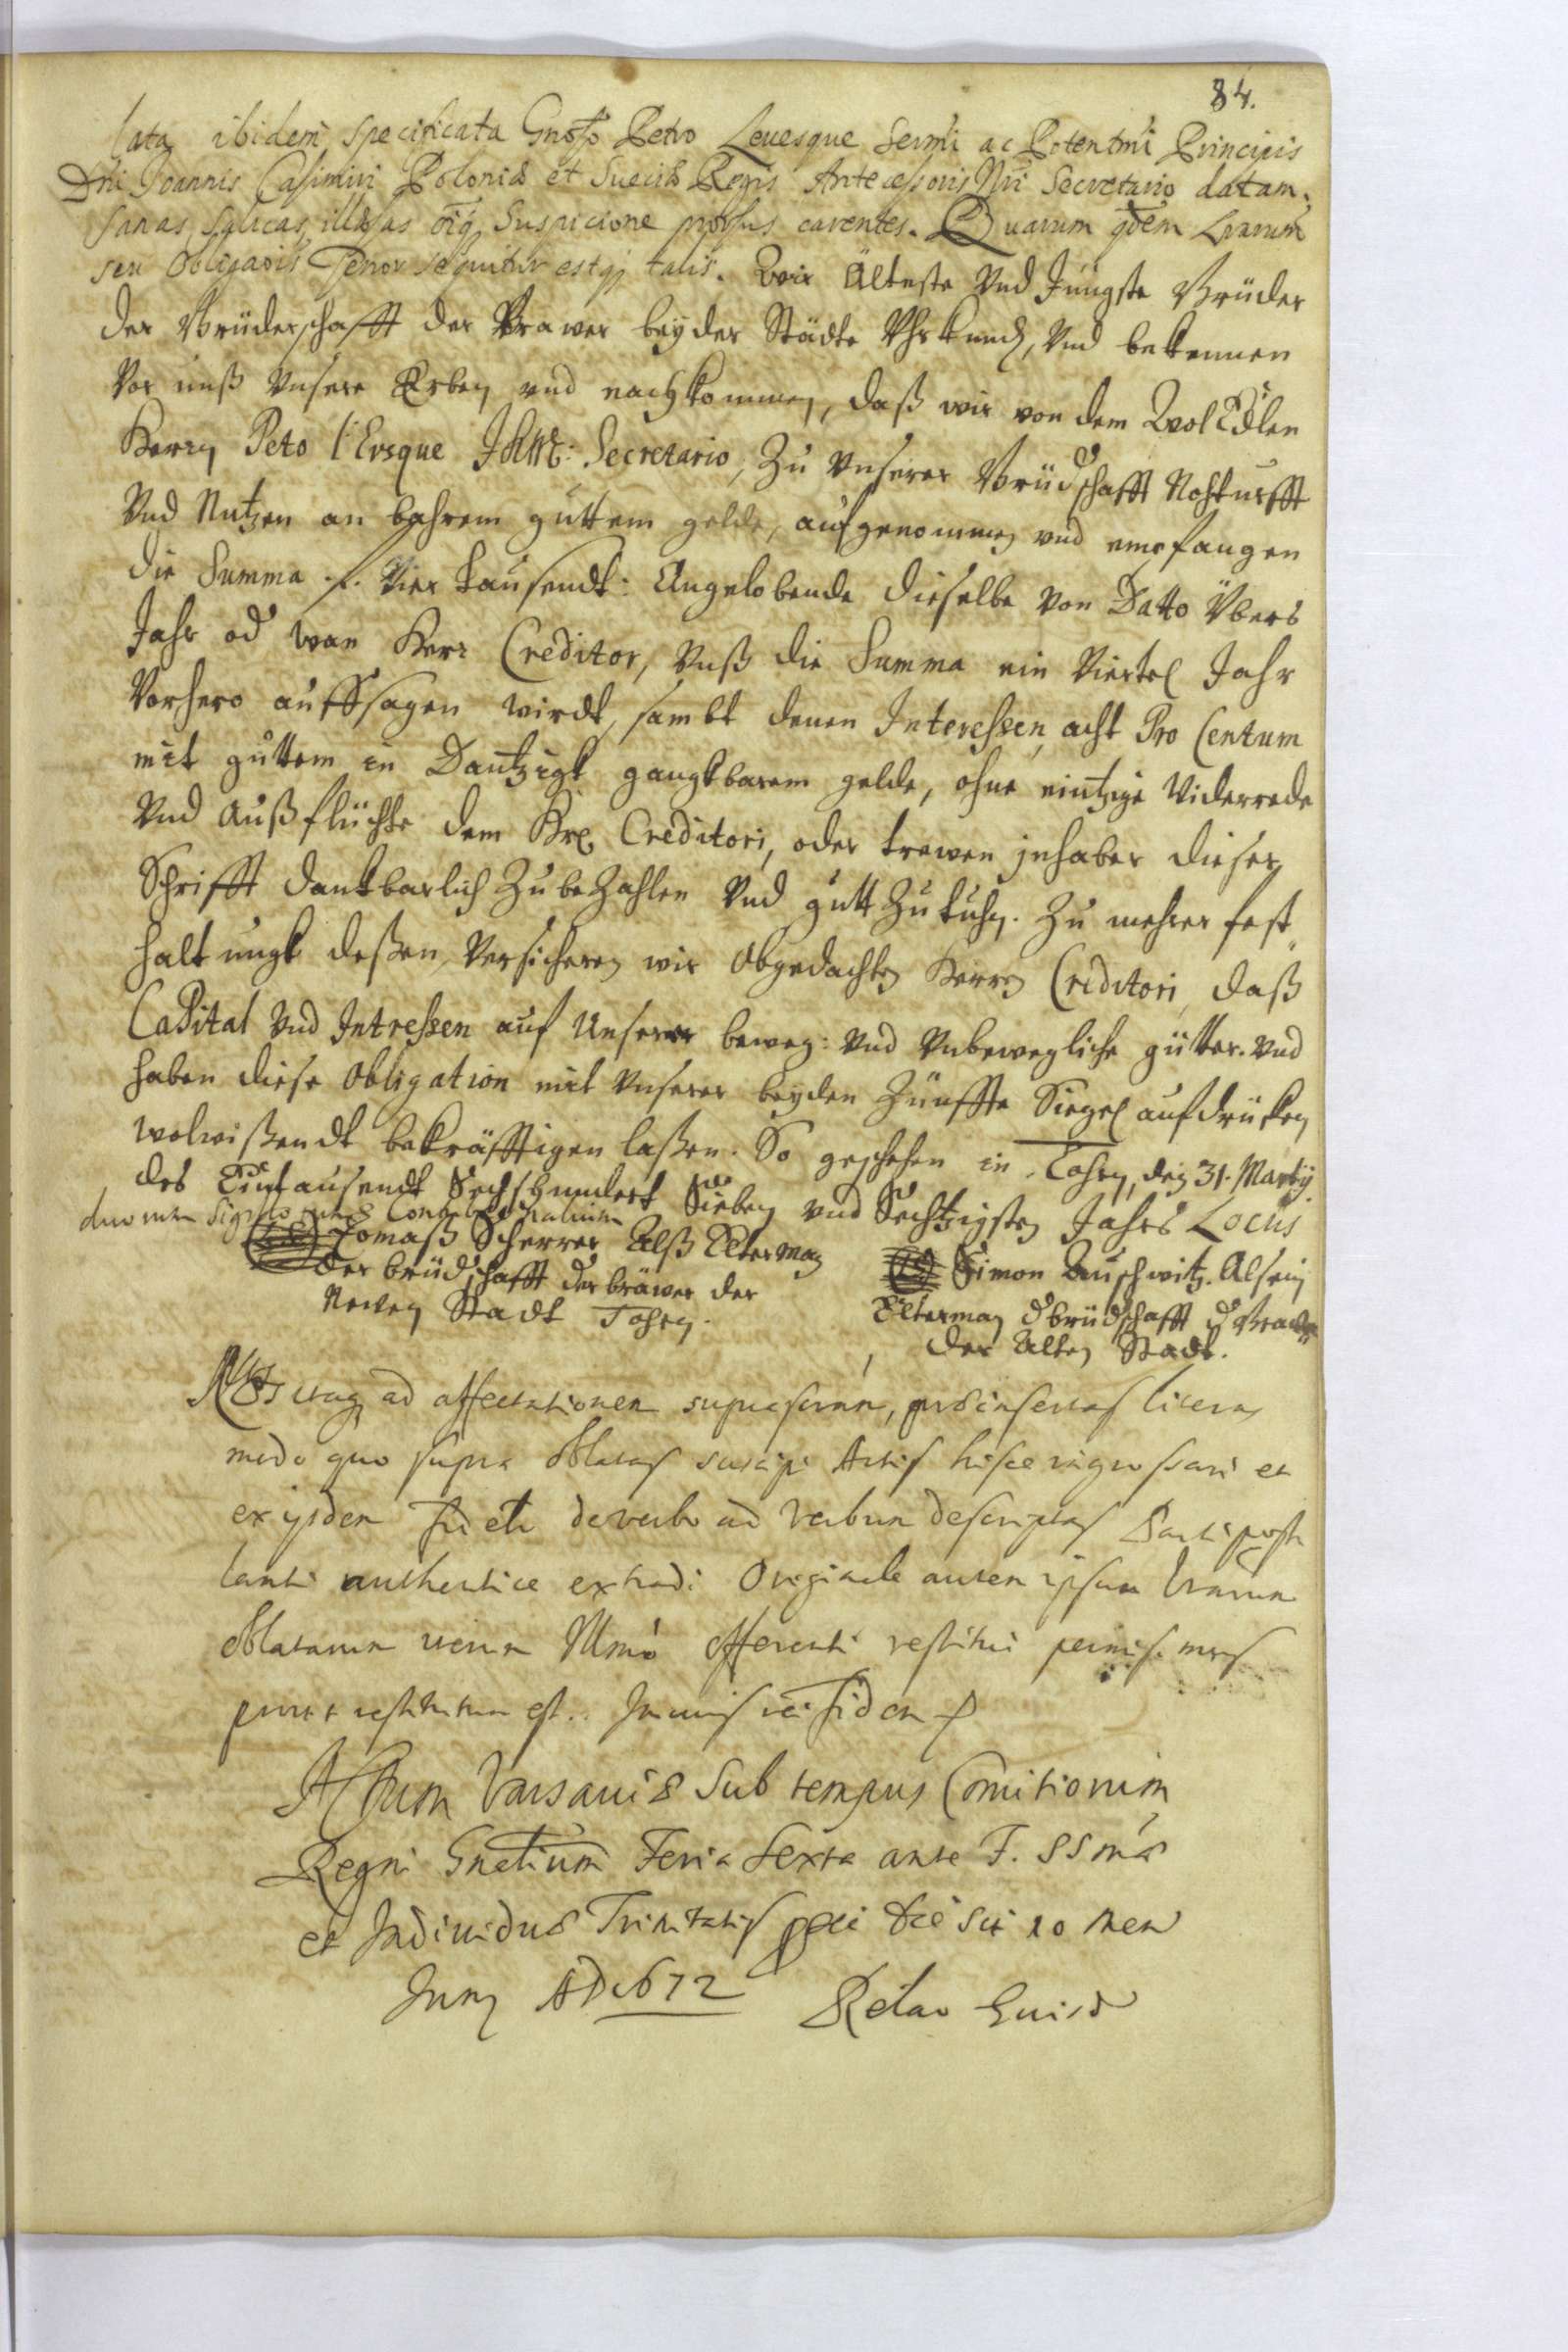 84.
lata ibidem specificata Gnoso Petro Levesque Sermi ac Potentmi Principis
Dni Joannis Casimiri Poloniæ et Sueciæ Regis Antecessoris Nri Secretario datam.
Sanas, Salvas, illæsas oiq Suspicione prorsus carentes. Quarum qdem Lrarum
seu Obligaois Tenor sequitur estq talis. Wir Älteste Vnd Jüngste Brüder
der Brüderschafft der Brawer beyder Städte Uhrkund, Vnd bekennen
Vor unß Unsere Erben und nachkommen, daß wir von dem Wol Edlen
Herrn Peto l'Evsque JKM: Secretario, Zu Unserer Brüdschafft Nohturfft
Vnd Nutzen an bahrem guttem gelde, aufgenommen und empfangen
die Summa f. Vier tausendt: Angelobende dieselbe von Datto Übers
Jahr od wan Herr Creditor, Unß die Summa ein Viertel Jahr
Vorhero auffsagen wirdt, sambt denen Interessen, acht Pro Centum
mit guttem in Dantzigk gangkbarem gelde, ohne eintzige Widerrede
Vnd Außflüchte dem Hrn Creditori, oder trewen inhaber dieser
Schrifft dankbarlich Zu beZahlen Vnd gutt Zu tuhn. Zu mehrer fest
haltungk deßen, Versicheren wir Obgedachten Herren Creditori, daß
CaPital Vnd Intressen auf Unserer beweg: Vnd Unbewegliche gütter. Vnd
haben diese Obligation mit Unserer beyden Zünffte Siegel aufdrücken
wolwißendt bekräfftigen laßen. So geschehen in Tohrn, den 31. Martij
des Eintausendt Sechshundert Sieben und Sechtzigsten Jahrs Locus
duorum Sigillorum
Tomaß Scherrer Alß Elterman
der brüdschafft der bräwer der
Newen Stadt Tohrn.
Simon Buschwitz. Alsein
Elterman d brüdschafft d Brawer
der Alten Stadt.
Nos itaq ad affectationem suprascriptam, præinsertas literas
modo quo supra oblatas suscipi Actis hisce ingrossari et
ex ijsdem fideli de verbo ad verbum descriptas Parti postu
lanti authentice extradi Originale autem ipsum Lrarum
oblatarum iterum Illmo offerenti restitui permisimus
prout restitutum est. In cuius rei fidem
Actum Varsaviæ Sub tempus Comitiorum
Regni Gnalium Feria Sexta ante F. SSmæ
et Individuæ Trinitatis pxa die scil 10 men
Junij AD 1672